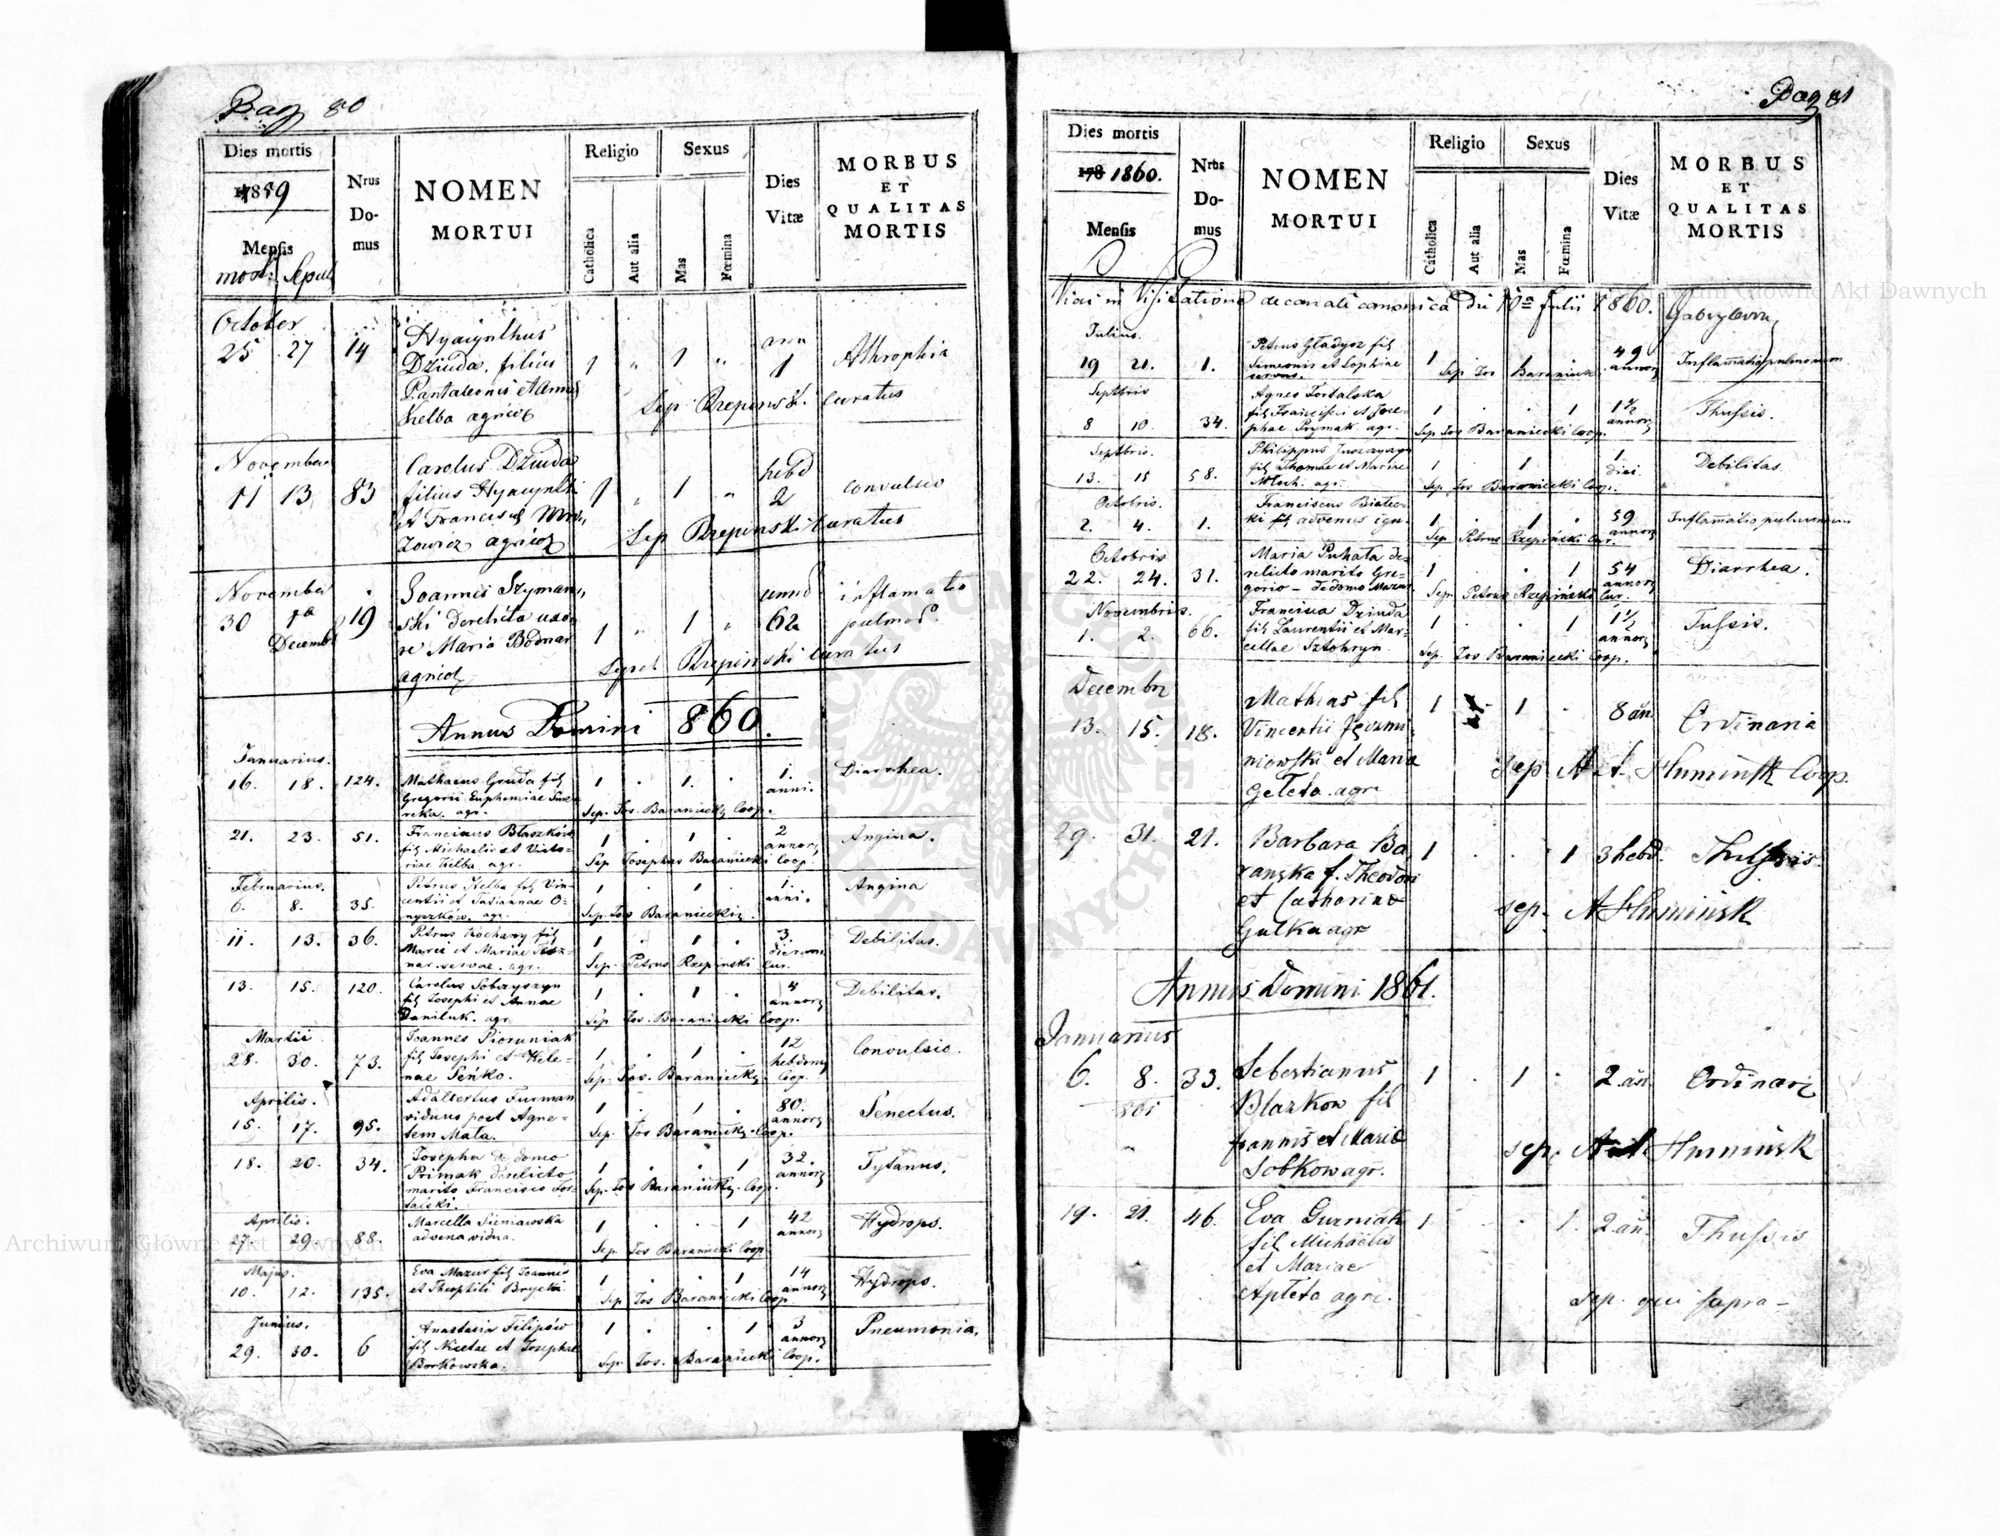 Pag 80
Dies mortis
1859
Mensis
mort. Sepul
Nrus
Do-
mus
NOMEN
MORTUI
Religio
Catholica
Aut alia
Sexus
Mas
Fœmina
Dies
Vitæ
MORBUS
ET
QUALITAS
MORTIS
October
25 27 14
Hyacynthus
Dziuda, filius
Pantaleonis et Annae
Kelba agricol
1 " 1 "
ann
1
Athrophia
Sep Rzepinski Curatus
November
11 13 83
Carolus Dziuda
filius Hyacynthi
et Francisca
agricol
1 " 1 "
hebd
2
convulsio
Sep Rzepinski Curatus
November
30 1a
Decemb
19
Joannes Szyman
ski Derelicta uxo
re Maria Bodnar
agricol
1 " 1 "
62
inflamatio
pulmon
Sepel Rzepinski Curatus
Annus Domini 1860.
Januarius.
16. 18. 124.
Mathaeus Gruda fil
Gregorii Euphemiae
agr.
1 . 1. .
1.
anni.
Diarrhea.
Sep. Jos. Baraniecki Coop.
21. 23. 51.
Franciscus Błaszków
fil Michaelis et Victo-
riae Kelba agr.
1 . 1 .
2
annor
Angina.
Sep Josephus Baraniecki Coop.
Februarius.
6. 8. 35.
Petrus Kelba fil Vin-
centii et Tatiannae O-
nyszków. agr.
1 . 1 .
1.
anni.
Angina
Sep Jos Baraniecki.
11. 13. 36.
Petrus Kochary fil
Marci et Mariae
servae. agr.
1 . 1 .
3.
dierum
Debilitas.
Sep. Petrus Rzepinski Cur.
13. 15. 120.
Carolus Sobczyszyn
fil Josephi et Annae
Daniluk. agr
1 . 1 .
4
annor
Debilitas.
Sep Jos. Baraniecki Coop.
Martii
28. 30. 73.
Joannes Pioruniak
fil Josephi et Hele-
nae Seńko.
1 . 1 .
12
hebdom
Convulsio.
Sep. Jos. Baraniecki Coop.
Aprilis.
15. 17. 95.
Adalbertus Furman
viduus post Agne-
tem Mata.
1 . 1 .
80.
annor
Senectus.
Sep. Jos Baraniecki Coop.
18. 20. 34.
Josepha de domo
Primak derelicto
marito Francisco Tor-
balski.
1 . . 1
32.
annor
Tytanus.
Sep. Jos Baraniecki Coop.
Aprilis.
27. 29. 88.
Marcella Sieniawska
advena vidua.
1 . . 1
42
annor
Hydrops.
Sep. Jos Baraniecki Coop
Majus.
10. 12. 135.
Eva Mazur fil Joannis
et Theophili Brycki
1 . . 1
14
annor
Hydrops.
Sep Jos Baraniecki Coop
Junius.
29. 30. 6
Anastasia Filipów
fil Nicetae et Josephae
Borkowska.
1 . . 1
3
annor
Pneumonia.
Sep. Jos. Baraniecki Coop.
Pag 81
Dies mortis
178 1860.
Mensis
Nrus
Do-
mus
NOMEN
MORTUI
Religio
Catholica
Aut alia
Sexus
Mas
Fœmina
Dies
Vitæ
MORBUS
ET
QUALITAS
MORTIS
Vidi in Visitatione decanali canonica die 10a Julii 1860.
Julius.
19 21. 1.
Petrus Gładysz fil
Simeonis et Sophiae
servus.
1 1
49
annor
Inflammatio pulmonum
Sep Jos Baraniecki
Septbris
8 10. 34.
Agnes Torbalska
fil Francisci et Jose-
phae Prymak agr.
1 . . 1
1 1/2
annor
Thussis.
Sep Jos Baraniecki Coop.
Septbris.
13. 15 58.
Philippus Juszczyszyn
fil Thomae et Mariae
Moloch. agr.
1 . 1
1.
diei
Debilitas.
Sep. Jos Baraniecki Coop.
Octobris.
2. 4. 1.
Franciscus Białec-
ki fil advenus ign.
1 . 1 .
59
annor
Inflammatio pulmonum
Sep Petrus Rzepinski Cur.
Octobris
22. 24. 31.
Maria Puhata de-
relicto marito Gre-
gorio - de domo Mazur
1 . . 1
54
annor
Diarrhea.
Sep. Petrus Rzepinski Cur.
Novembris.
1. 2. 66.
Francisca Dziuda
fil Laurentii et Mar-
cellae Sztohryn
1 . . 1
1 1/2
annor
Tussis.
Sep. Jos Baraniecki Coop.
Decembr
13. 15. 18.
Mathias fil
Vincentii Jęczmi-
niowski et Maria
Geleta agr
1 1 .
8 an
Ordinaria
sep. Ant. Humiński Coop.
29. 31. 21.
Barbara Ba
ranska f. Theodori
et Catharina
Gulka agr
1 . . 1
3 hebd.
Thussis
sep. A Humińsk
Annus Domini 1861.
Januarius
6. 8. 33.
861
Sebastianus
Blazkow fil
Joannis et Maria
Sobkow agr.
1 . 1 .
2 an.
Ordinari
sep. Ant Humińsk
19. 21. 46.
Eva Gurniak
fil Michaelis
et Mariae
Apteta agr.
1 . . 1.
2 an.
Thussis
Sep. qui supra -
Archiwum Główne Akt Dawnych
Archiwum Główne Akt Dawnych
ARCHIWUM GŁÓWNE AKT DAWNYCH